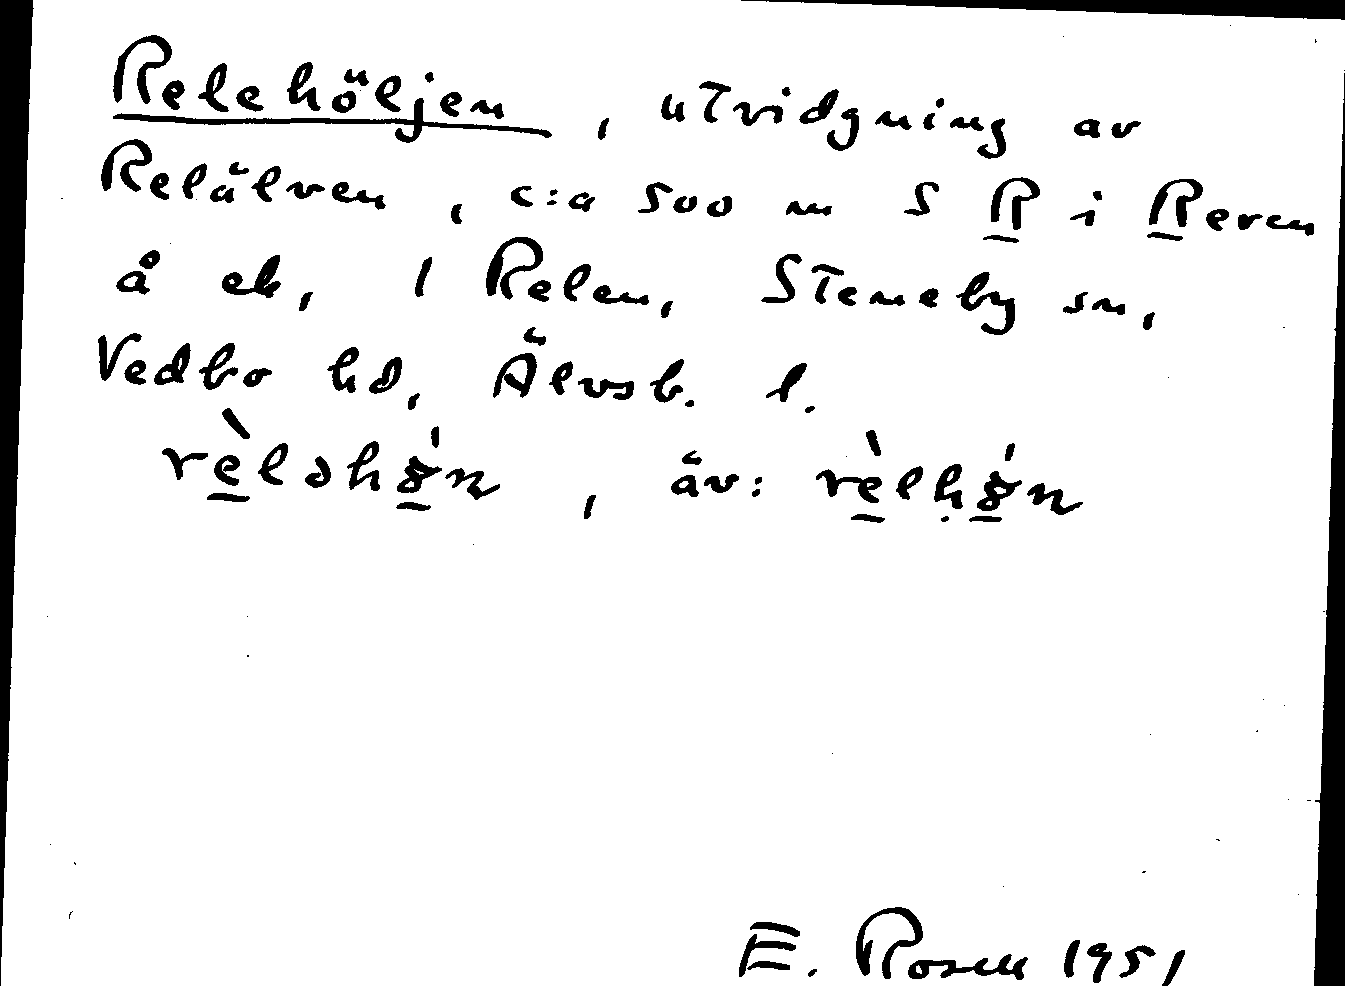 Relehöljen, utvidgning av
Relälven, c:a 500 m S R i Reven
å ek, 1 Relen, Steneby sn,
Vedbo hd, Älvsb. l.
rèləhǿn, äv: rèlhǿn
E. Rosell 1951